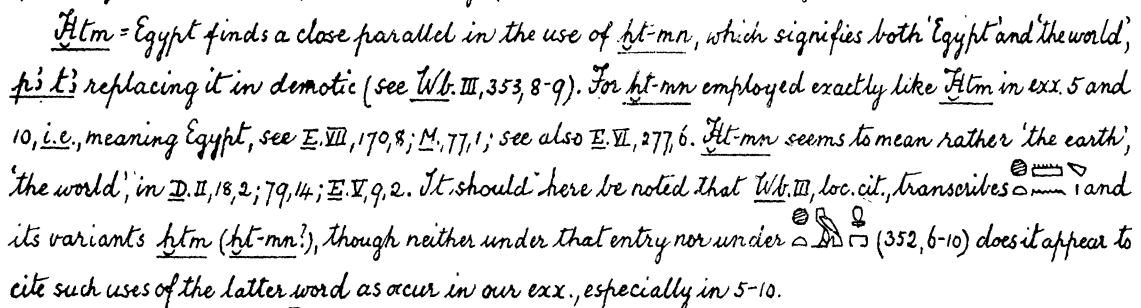 Ḫtm = Egypt finds a close parallel in the use of ḫt-mn, which signifies both 'Egypt' and 'the world',
pꜣ tꜣ replacing it in demotic (see Wb. III, 353, 8-9). For ḫt-mn employed exactly like Ḫtm in exx. 5 and
10, i.e., meaning Egypt, see E. VII, 170, 8; M., 77, 1; see also E. VI, 277, 6. Ḫt-mn seems to mean rather 'the earth',
'the world', in D. II, 18, 2; 79, 14; E. V, 9, 2. It should here be noted that Wb. III, loc. cit., transcribes and
its variants ḫtm (ḫt-mn?), though neither under that entry nor under (352, 6-10) does it appear to
cite such uses of the latter word as occur in our exx., especially in 5-10.